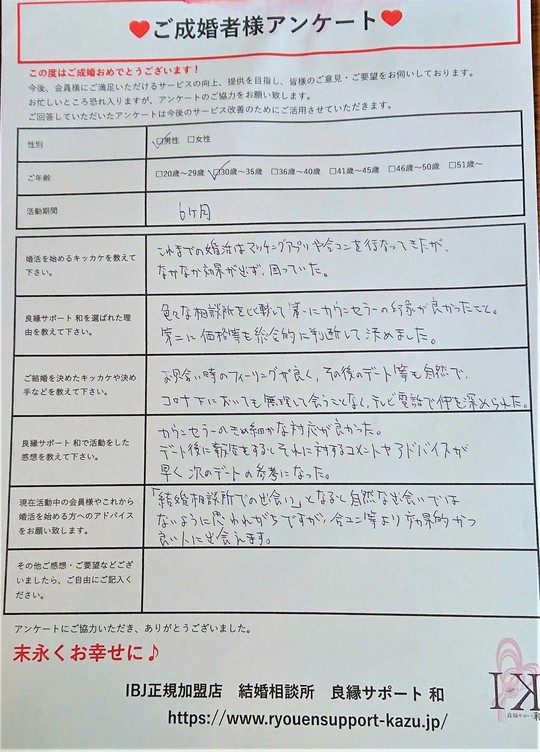 ♥ご成婚者様アンケート♥
この度はご成婚おめでとうございます！
今後、会員様にご満足いただけるサービスの向上、提供を目指し、皆様のご意見・ご要望をお伺いしております。
お忙しいところ恐れ入りますが、アンケートのご協力をお願い致します。
ご回答していただいたアンケートは今後のサービス改善のためにご活用させていただきます。
性別 ☑男性 □女性
ご年齢 □20歳～29歳 ☑30歳～35歳 □36歳～40歳 □41歳～45歳 □46歳～50歳 □51歳～
活動期間 6ヶ月
婚活を始めるキッカケを教えて
下さい。
これまでの婚活はマッチングアプリや合コンを行なってきたが、
なかなか効果が出ず、困っていた。
良縁サポート 和を選ばれた理
由を教えて下さい。
色々な相談所を比較して第一にカウンセラーの印象が良かったこと。
第二に価格等も総合的に判断して決めました。
ご結婚を決めたキッカケや決め
手などを教えて下さい。
お見合い時のフィーリングが良く、その後のデート等も自然で、
コロナ下においても無理して会うことなく、テレビ電話で仲を深められた。
良縁サポート 和で活動をした
感想を教えて下さい。
カウンセラーのきめ細かな対応が良かった。
デート後に報告をするとそれに対するコメントやアドバイスが
早く次のデートの参考になった。
現在活動中の会員様やこれから
婚活を始める方へのアドバイス
をお願い致します。
「結婚相談所での出会い」となると自然な出会いでは
ないように思われがちですが、合コン等より効果的かつ
良い人に出会えます。
その他ご感想・ご要望などござ
いましたら、ご自由にご記入く
ださい。
アンケートにご協力いただき、ありがとうございました。
末永くお幸せに♪
IBJ正規加盟店 結婚相談所 良縁サポート 和
https://www.ryouensupport-kazu.jp/
良縁サポート和